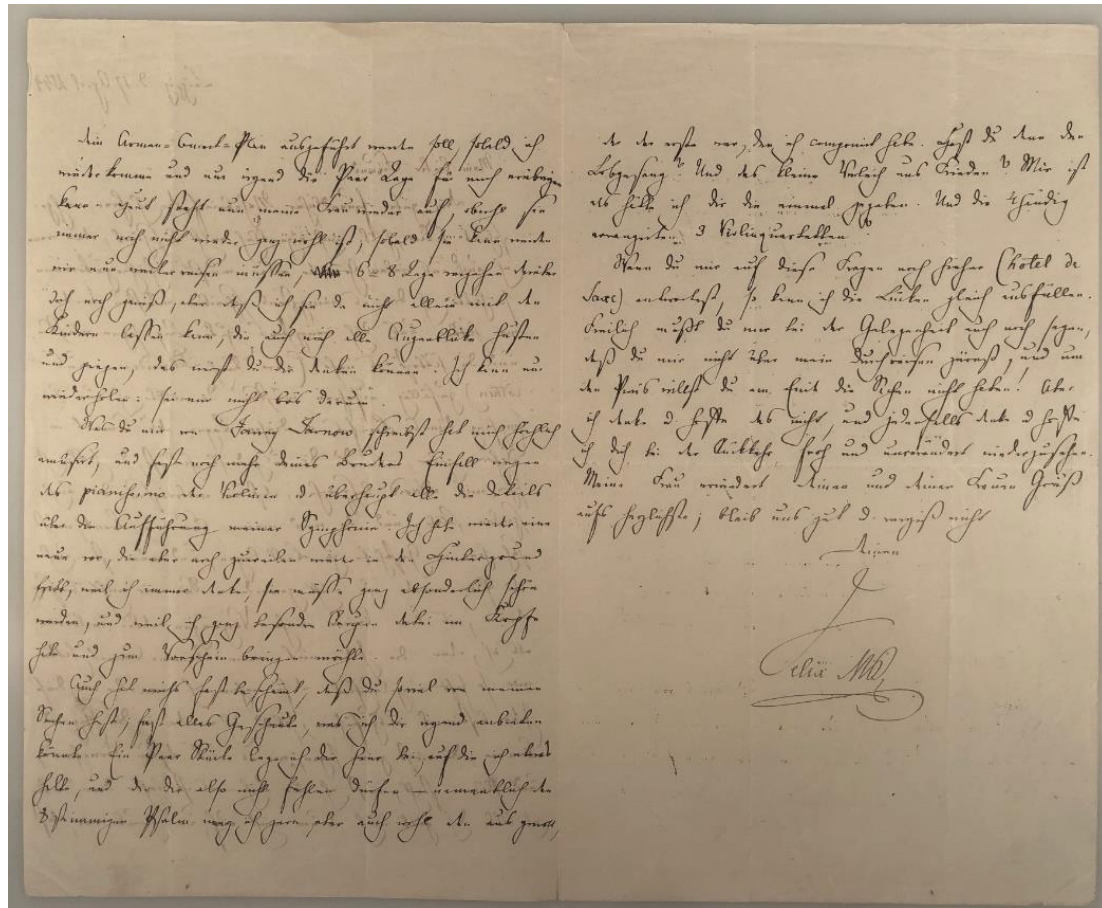 dein Armen-Concert-Plan ausgeführt werden soll, sobald ich
wiederkomme und nur irgend die Paar Tage für mich erübrigen
kann. Heut steht nun meine Frau wieder auf, obwohl sie
immer noch nicht wieder ganz wohl ist; sobald sie kann werden
wir nun weiterreisen müssen, 6 – 8 Tage vergehen darüber
doch noch gewiß, aber daß ich sie da nicht allein mit den
Kindern lassen kann, die auch noch alle Augenblicke husten
und piepen, das wirst du dir denken können. Ich kann nur
wiederholen: sei mir nicht bös darum.
Was du mir von Fanny Tarnow schreibst hat mich höchlich
amüsirt, und fast noch mehr deines Bruders Einfall wegen
des pianissimo der Violinen u. überhaupt alle die Details
über die Aufführung meiner Symphonie. Ich habe wieder eine
neue vor, die aber noch zuweilen weiter in den Hintergrund
tritt, weil ich immer denke, sie müsse ganz absonderlich schön
werden, und weil ich ganz besondre Sachen dabei im Kopfe
habe und zum Vorschein bringen möchte.
Auch hat michs fast beschämt, daß du soviel von meinen
Sachen hast; fast alles Gescheute, was ich dir irgend anbieten
könnte. Ein Paar Stücke lege ich dir hier bei, auf die ich etwas
halte, und die dir also nicht fehlen dürfen – namentlich den
8stimmigen Psalm mag ich gern, aber auch wohl den aus gmoll,
der der erste war, den ich componirt habe. Hast du denn den
Lobgesang? Und das kleine Verleih uns Frieden? Mir ist
als hätte ich dir die einmal gegeben. Und die 4händig
arrangirten 3 Violinquartetten?
Wenn du mir auf diese Fragen noch hieher (hôtel de
Saxe) antwortest, so kann ich die Lücken gleich ausfüllen.
Freilich mußt du mir bei der Gelegenheit auch noch sagen,
daß du mir nicht über mein Durchreisen zürnest, und um
den Preis willst du am Ende die Sachen nicht haben! Aber
ich denke u. hoffe das nicht, und jedenfalls denke u. hoffe
ich dich bei der Rückkehr froh und unverändert wiederzusehen.
Meine Frau erwiedert deinen und deiner Frauen Gruß
aufs herzlichste; bleib uns gut u. vergiß nicht
deinen
Felix MB